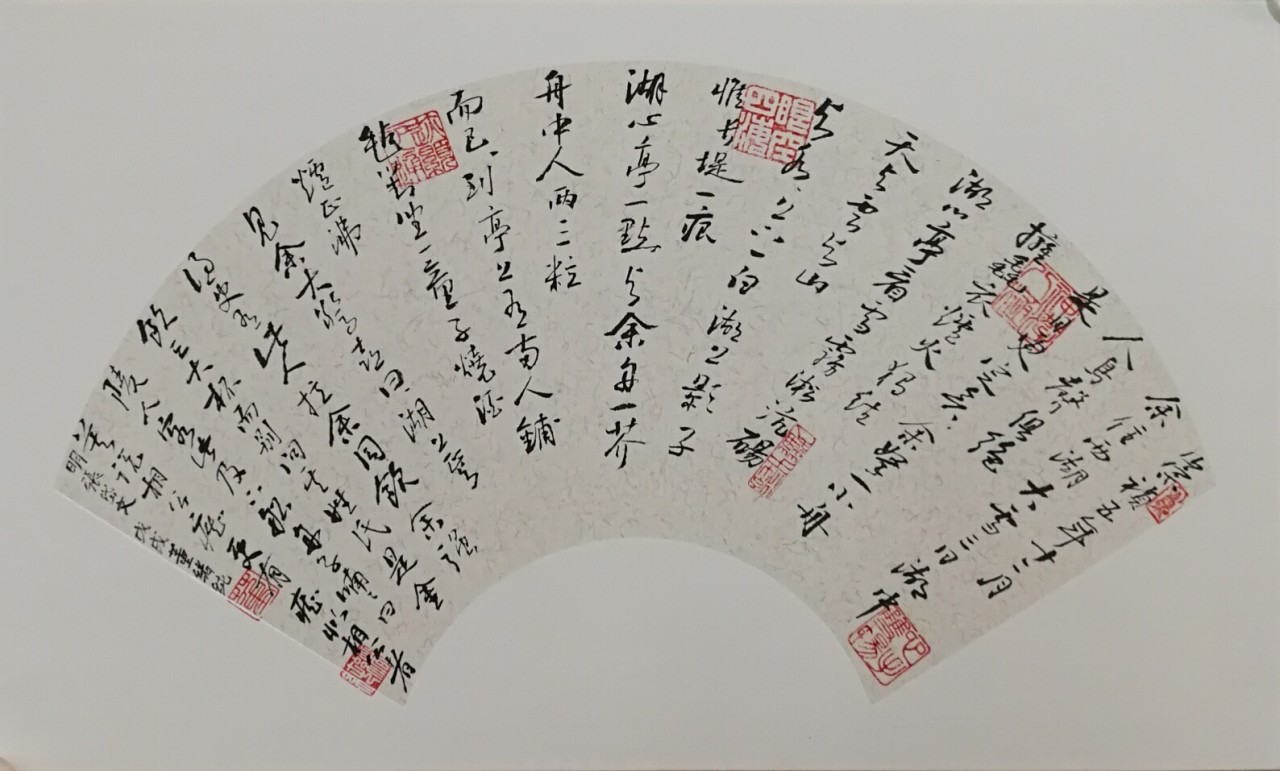 崇禎五年十二月
余住西湖大雪三日湖中
人鳥聲俱絕
是日更定矣余拏一小舟
擁毳衣爐火獨往
湖心亭看雪霧淞沆碭
天與雲與山
與水上下一白湖上影子
惟長堤一痕
湖心亭一點與余舟一芥
舟中人兩三粒
而已到亭上有兩人鋪
氈對坐一童子燒酒
爐正沸
見余大驚喜曰湖上焉
得更有此人拉余同飲余强
飲三大杯而别問其姓氏是金
陵人客此及下船舟子喃喃曰
莫說相公癡更有癡似相公者
明張岱文 戊戌董